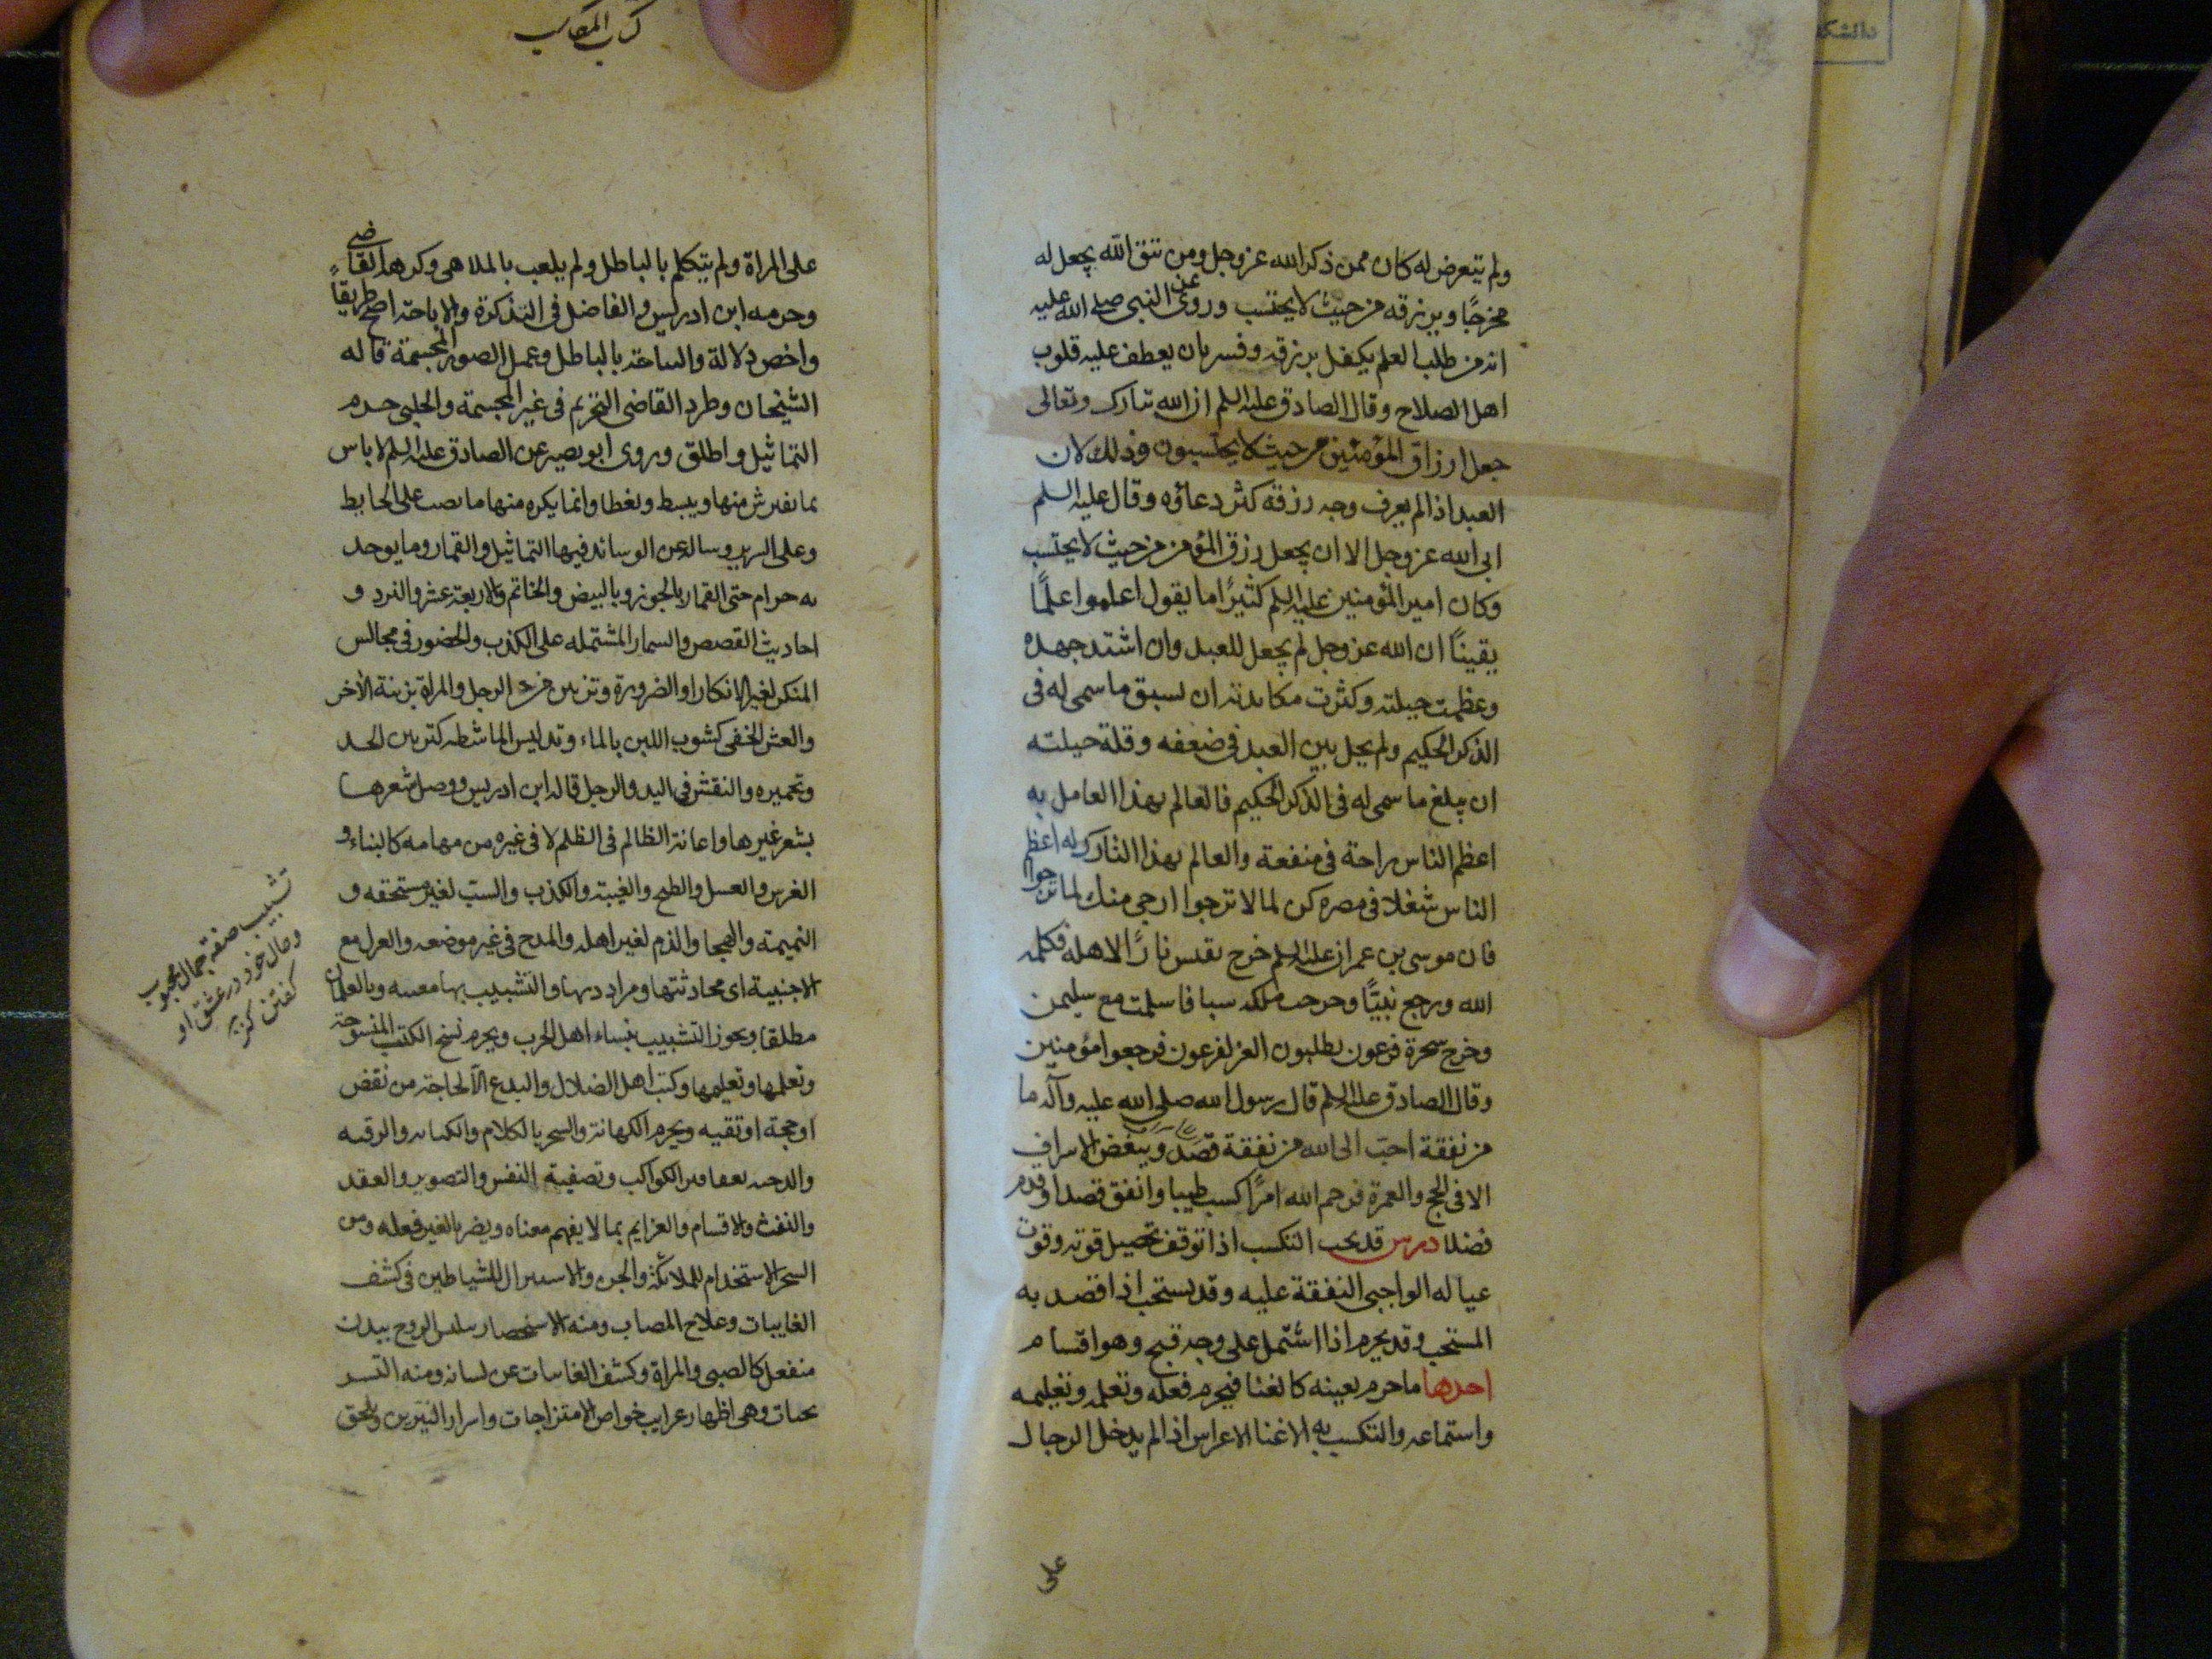 ولم يتعرض له كان ممن ذكر الله عز وجل ومن يتق الله يجعل له
مخرجًا ويرزقه من حيث لا يحتسب وروى عن النبي صلى الله عليه
انه من طلب العلم يكفل برزقه وفسر بان يعطف عليه قلوب
اهل الصلاح وقال الصادق عليه السلم ان الله تبارك وتعالى
جعل ارزاق المؤمنين من حيث لا يحتسبون وذلك لان
العبد اذا لم يعرف وجه رزقه كثر دعاؤه وقال عليه السلم
ابى الله عز وجل الا ان يجعل رزق المؤمن من حيث لا يحتسب
وكان امير المؤمنين عليه السلم كثيرًا ما يقول اعلموا علمًا
يقينًا ان الله عز وجل لم يجعل للعبد وان اشتد جهده
وعظمت حيلته وكثرت مكايدته ان يسبق ما سمى له فى
الذكر الحكيم ولم يحل بين العبد فى ضعفه وقلة حيلته
ان يبلغ ما سمى له فى الذكر الحكيم فالعالم بهذا العامل به
اعظم الناس راحة فى منفعة والعالم بهذا التارك له اعظم
الناس شغلا فى مضره كن لما لا ترجوا ارجى منك لما ترجوا
فان موسى بن عمران عليه السلم خرج يقبس نارًا لاهله فكلمه
الله ورجع نبيًّا وخرجت ملكه سبا فاسلمت مع سليمن
وخرج سحرة فرعون يطلبون العز لفرعون فرجعوا مؤمنين
وقال الصادق عليه السلم قال رسول الله صلى الله عليه وآله ما
من نفقة احبّ الى الله من نفقة قصد ويبغض الاسراف
الا فى الحج والعمرة فرحم الله امرًا كسب طيبا وانفق قصدا وقدم
فضلا درس قد يجب التكسب اذا توقف تحصيل قوته وقوت
عياله الواجبى النفقة عليه وقد يستحب اذا قصد به
المستحب وقد يحرم اذا اشتمل على وجه قبح وهو اقسام
احدها ما حرم بعينه كالغنا فيحرم فعله وتعلمه وتعليمه
واستماعه والتكسب به الا غنا الاعراس اذا لم يدخل الرجال
على
كتاب المكاسب
على المراة ولم يتكلم بالباطل ولم يلعب بالملاهى وكرهه القاضى
وحرمه ابن ادريس والفاضل فى التذكرة والاباحة اصح طريقًا
واخص دلالة والنياحة بالباطل وعمل الصور المجسمة قاله
الشيخان وطرد القاضى التحريم فى غير المجسمة والحلبى حرم
التماثيل واطلق وروى ابو بصير عن الصادق عليه السلم لا باس
بما يفترش منها ويبسط ويغطا وانما يكره منها ما نصب على الحايط
وعلى السرير وساله عن الوسائد فيها التماثيل والقمار وما يوخذ
به حرام حتى القمار بالجوز وبالبيض والخاتم والاربعة عشر والنرد و
احاديث القصص والسمار المشتمله على الكذب والحضور فى مجالس
المنكر لغير الانكار او الضرورة وتزيين من الرجل والمراة بزينة الآخر
والغش الخفى كشوب اللبن بالماء وتدليس الماشطه كتزيين الخد
وتحميره والنقش فى اليد والرجل قاله ابن ادريس ووصل شعرها
بشعر غيرها واعانة الظالم فى الظلم لا فى غيره من مهامه كالبناء و
الغرس والغسل والطبخ والغيبة والكذب والسب لغير مستحقه و
النميمة والهجا والذم لغير اهله والمدح فى غير موضعه والغزل مع
الاجنبية اى محادثتها ومراودتها والتشبيب بها معينه وبالغلمان
مطلقا ويجوز التشبيب بنساء اهل الحرب ويحرم نسخ الكتب المنسوخة
وتعلمها وتعليمها وكتب اهل الضلال والبدع الّا لحاجة من نقض
او حجة او تقيه ويحرم الكهانة والسحر بالكلام والكتابه والرقيه
والدخنه بعقاقير الكواكب وتصفية النفس والتصوير والعقد
والنفث والاقسام والعزايم بما لا يفهم معناه ويضر بالغير فعله ومن
السحر الاستخدام للملائكة والجن والاستنزال للشياطين فى كشف
الغايبات وعلاج المصاب ومنه الاستحضار بتلبس الروح ببدن
منفعل كالصبى والمراة وكشف الغائبات عن لسانه ومنه
وهى اظهار غرايب خواص الامتزاجات واسرار النيّرين ويلحق
تشبيب صفة جمال محبوب
وحال خود در عشق او
گفتن